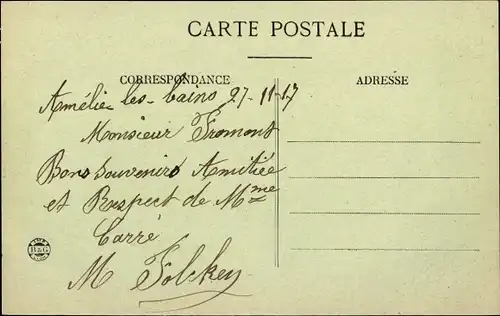 CARTE POSTALE
CORRESPONDANCE
ADRESSE
Amélie-les-bains 27-11-17
Monsieur Fromont
Bons Souvenirs Amitiée
et Respect de Mme
Carré
M Folckey
B&G